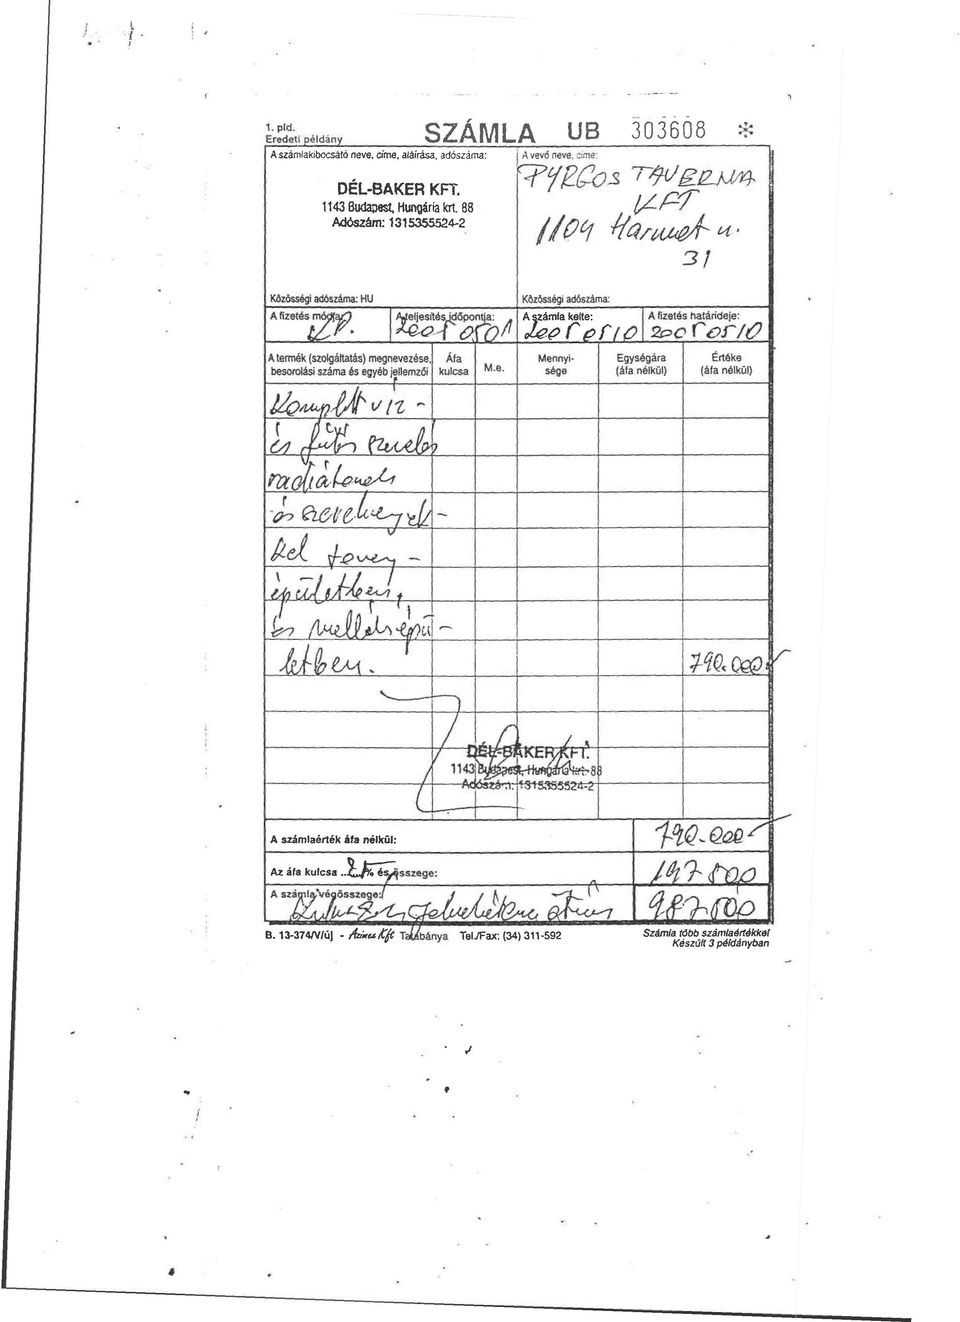 1. pld.
Eredeti példány
SZÁMLA UB 303608
A számlakibocsátó neve, címe, aláírása, adószáma:
A vevő neve, címe:
DÉL-BAKER KFT.
1143 Budapest, Hungária krt. 88
Adószám: 1315355524-2
PYRGOS TAVERNA
KFT
1104 Harmat u.
31
Közösségi adószáma: HU
Közösségi adószáma:
A fizetés módja: KP.
A teljesítés időpontja: 2005 05 01
A számla kelte: 2005 05 10
A fizetés határideje: 2005 05 10
A termék (szolgáltatás) megnevezése, besorolási száma és egyéb jellemzői
Áfa kulcsa
M.e.
Mennyisége
Egységára (áfa nélkül)
Értéke (áfa nélkül)
Komplett víz -
és fűtés szerelés
radiátorok
és szerelvények -
kel torony -
épületben,
és melléképü -
letben. 790.000
DÉL-BAKER KFT.
1143 Budapest, Hungária krt. 88
Adószám: 1315355524-2
A számlaérték áfa nélkül: 790.000
Az áfa kulcsa ..25% és összege: 197 500
A számla végösszege: 987 500
B. 13-374/V/új - Azimex Kft Tatabánya Tel./Fax: (34) 311-592
Számla több számlaértékkel
Készült 3 példányban